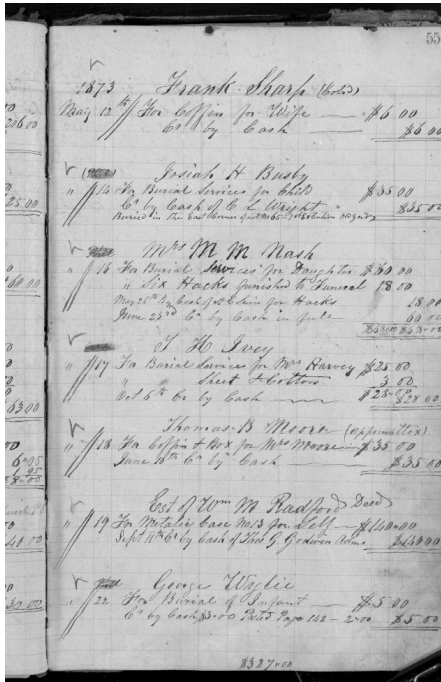 55
1873 Frank Sharp (Cold)
May 12th For Coffin for Wife $6 00
Cr by Cash $6 00
Josiah H Busby
" 14 For Burial Services for Child $35 00
Cr by Cash of C L Wright $35 00
Buried in the East Corner of
Mrs M M Nash
" 16 For Burial Services for Daughter $60 00
" Six Hacks furnished to Funeral 18 00
May 20th By Cash for Hacks 18 00
June 23rd Cr by Cash in full 60 00
$78 00 $78 00
T H Ivey
" 17 For Burial Services for Mrs Harvey $25 00
" " Sheet & Cotton 3 00
Oct 6th Cr by Cash $28 00 $28 00
Thomas B Moore (Appomattox)
" 18 For Coffin & Box for Mrs Moore $35 00
June 10th Cr by Cash $35 00
Est of Wm M Radford Decd
" 19 For Metalic Case No 13 for self $140 00
Sept 11th Cr by Cash of Thos G Godwin Adms $140 00
George Wylie
" 22 For Burial of Infant $5 00
Cr by Cash $3 00 Postd Page 142 - 2 00 $5 00
$327 00
206 00
25 00
60 00
63 00
6 05
1 95
8 00
40 00
30 00